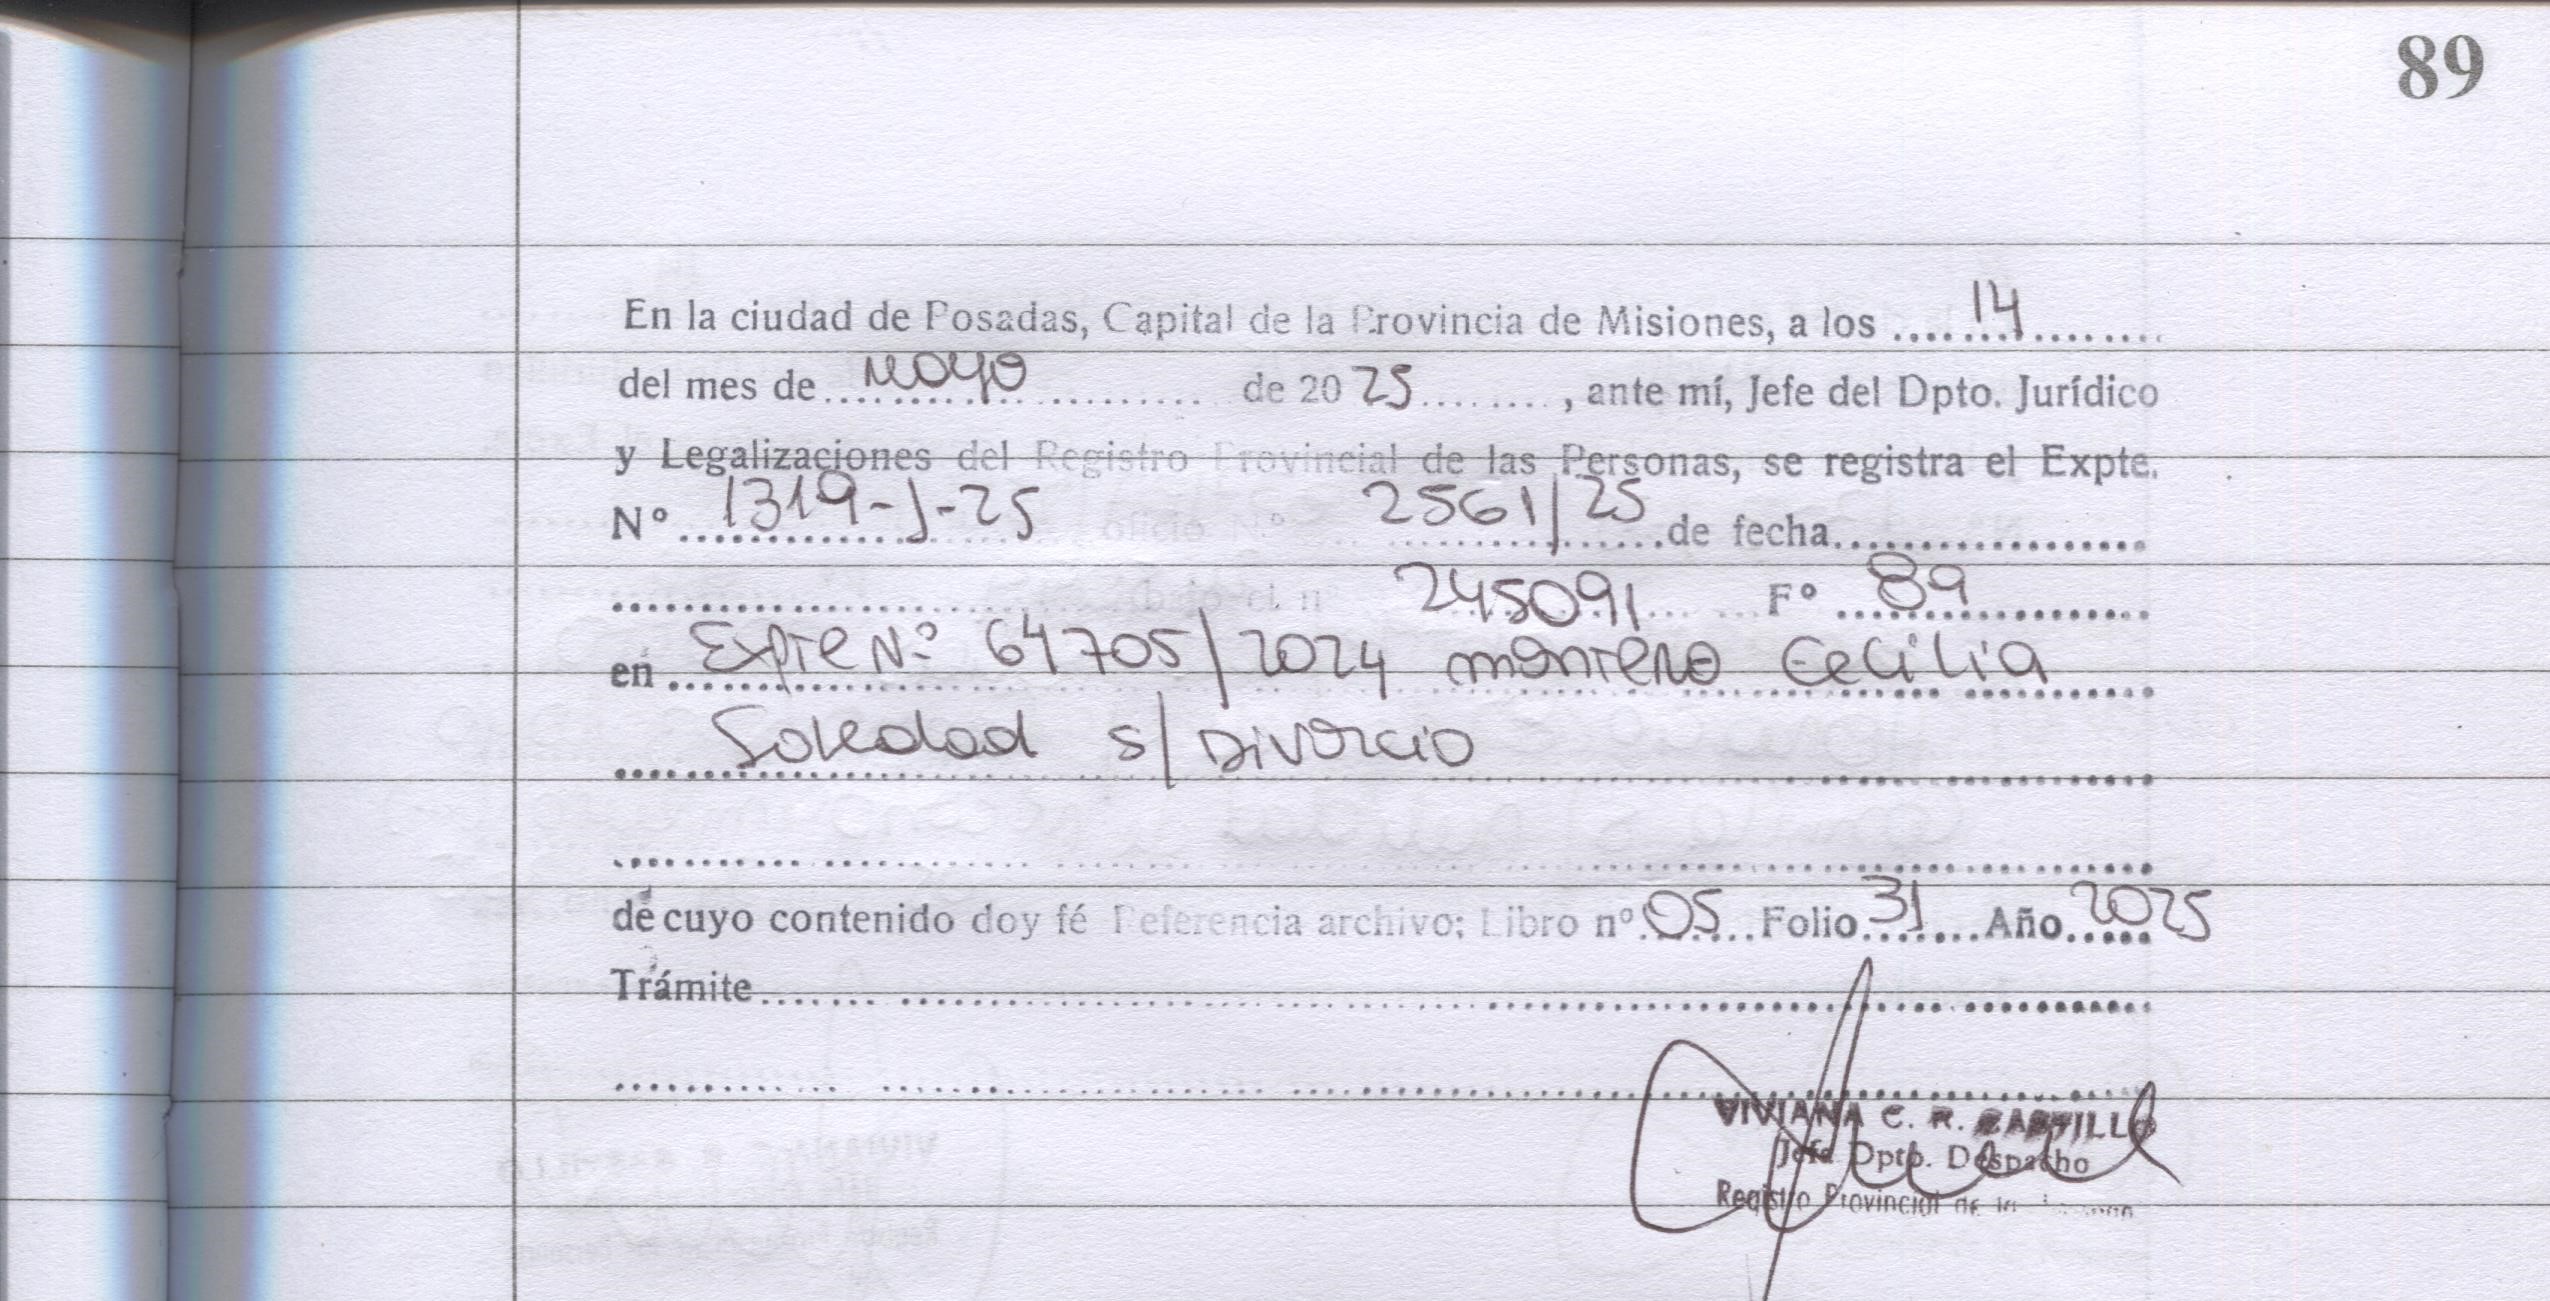 89
En la ciudad de Posadas, Capital de la Provincia de Misiones, a los ......14..........
del mes de ...mayo............ de 20 25........, ante mí, Jefe del Dpto. Jurídico
y Legalizaciones del Registro Provincial de las Personas, se registra el Expte.
Nº ...1319-J-25... oficio Nº ...2561/25...de fecha....................
.................... bajo el nº 245091...... Fº ...89..........
en ...Expte Nº 64705/2024 Montero Cecilia
Soledad s/ Divorcio
de cuyo contenido doy fé Referencia archivo; Libro nº.05...Folio.31....Año.2025
Trámite..............................
VIVIANA C. R. CASTILLO
Jefa Dpto. Despacho
Registro Provincial de las